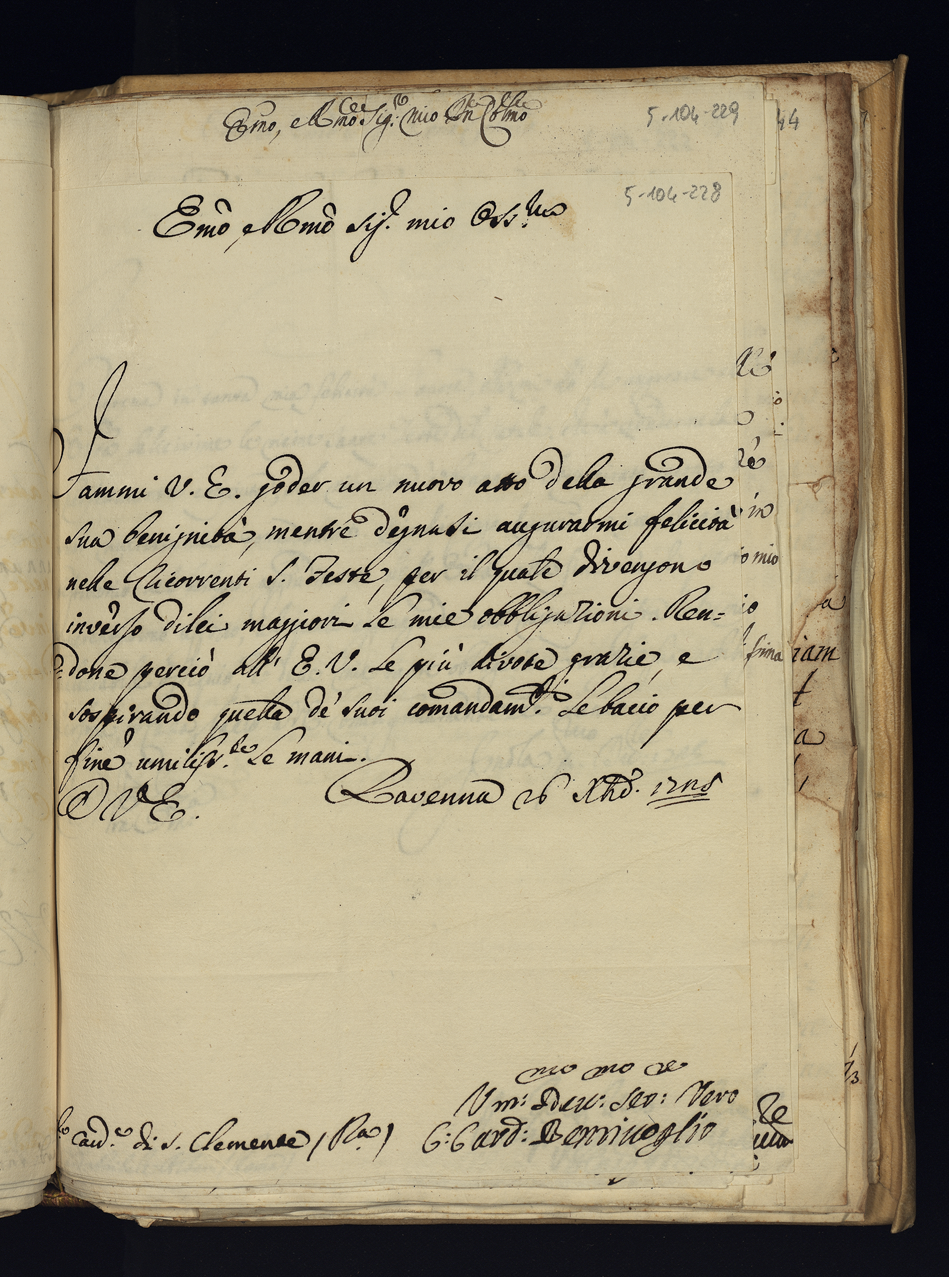 Emo, e Rmo Sig.r mio Pne Colmo
5-104-229
44
5-104-228
Emo, e Rmo Sig.r mio Oss.mo
Fammi V. E. goder un nuovo atto della grande
sua benignità, mentre degnasi augurarmi felicità
nelle ricorrenti S. Feste, per il quale divengono
inverso di lei maggiori le mie obbligazioni. Ren=
=done perciò all' E. V. le più divote grazie, e
sospirando quella de' suoi comandam.ti Le bacio per
fine umiliss.te le mani.
D V E.
Ravenna 26 Xbre.
mo mo re
Um: Deu: Ser: Vero
Card.e di S. Clemente (Ra)
C: Card: Bentivoglio